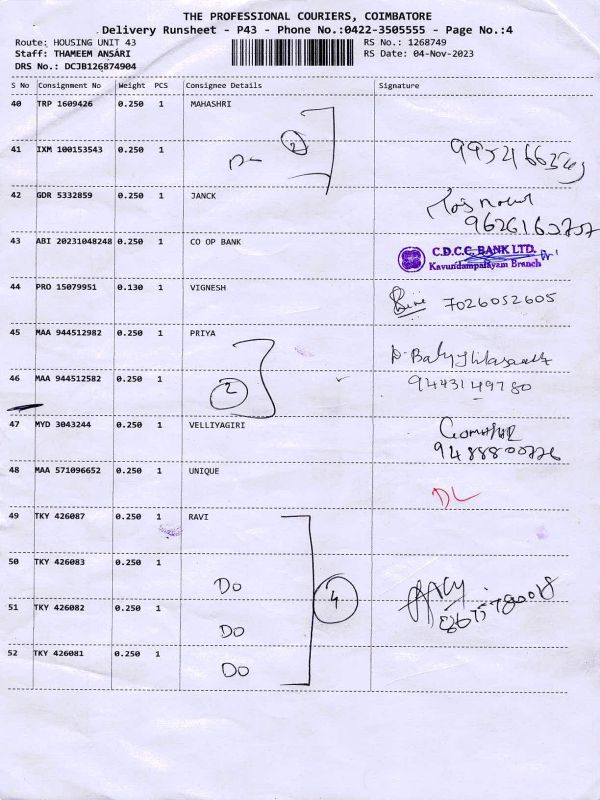 THE PROFESSIONAL COURIERS, COIMBATORE
Delivery Runsheet - P43 - Phone No.:0422-3505555 - Page No.:4
Route: HOUSING UNIT 43
RS No.: 1268749
Staff: THAMEEM ANSARI
RS Date: 04-Nov-2023
DRS No.: DCJB126874904
S No Consignment No Weight PCS Consignee Details Signature
40 TRP 1609426 0.250 1 MAHASHRI
2
41 IXM 100153543 0.250 1
42 GDR 5332859 0.250 1 JANCK
43 ABI 20231048248 0.250 1 CO OP BANK
C.D.C.C. BANK LTD.
Kavundampalayam Branch
44 PRO 15079951 0.130 1 VIGNESH
7026052605
45 MAA 944512982 0.250 1 PRIYA
46 MAA 944512582 0.250 1
2
9443149780
47 MYD 3043244 0.250 1 VELLIYAGIRI
9488800776
48 MAA 571096652 0.250 1 UNIQUE
DL
49 TKY 426087 0.250 1 RAVI
50 TKY 426083 0.250 1
Do
4
51 TKY 426082 0.250 1
Do
52 TKY 426081 0.250 1
Do